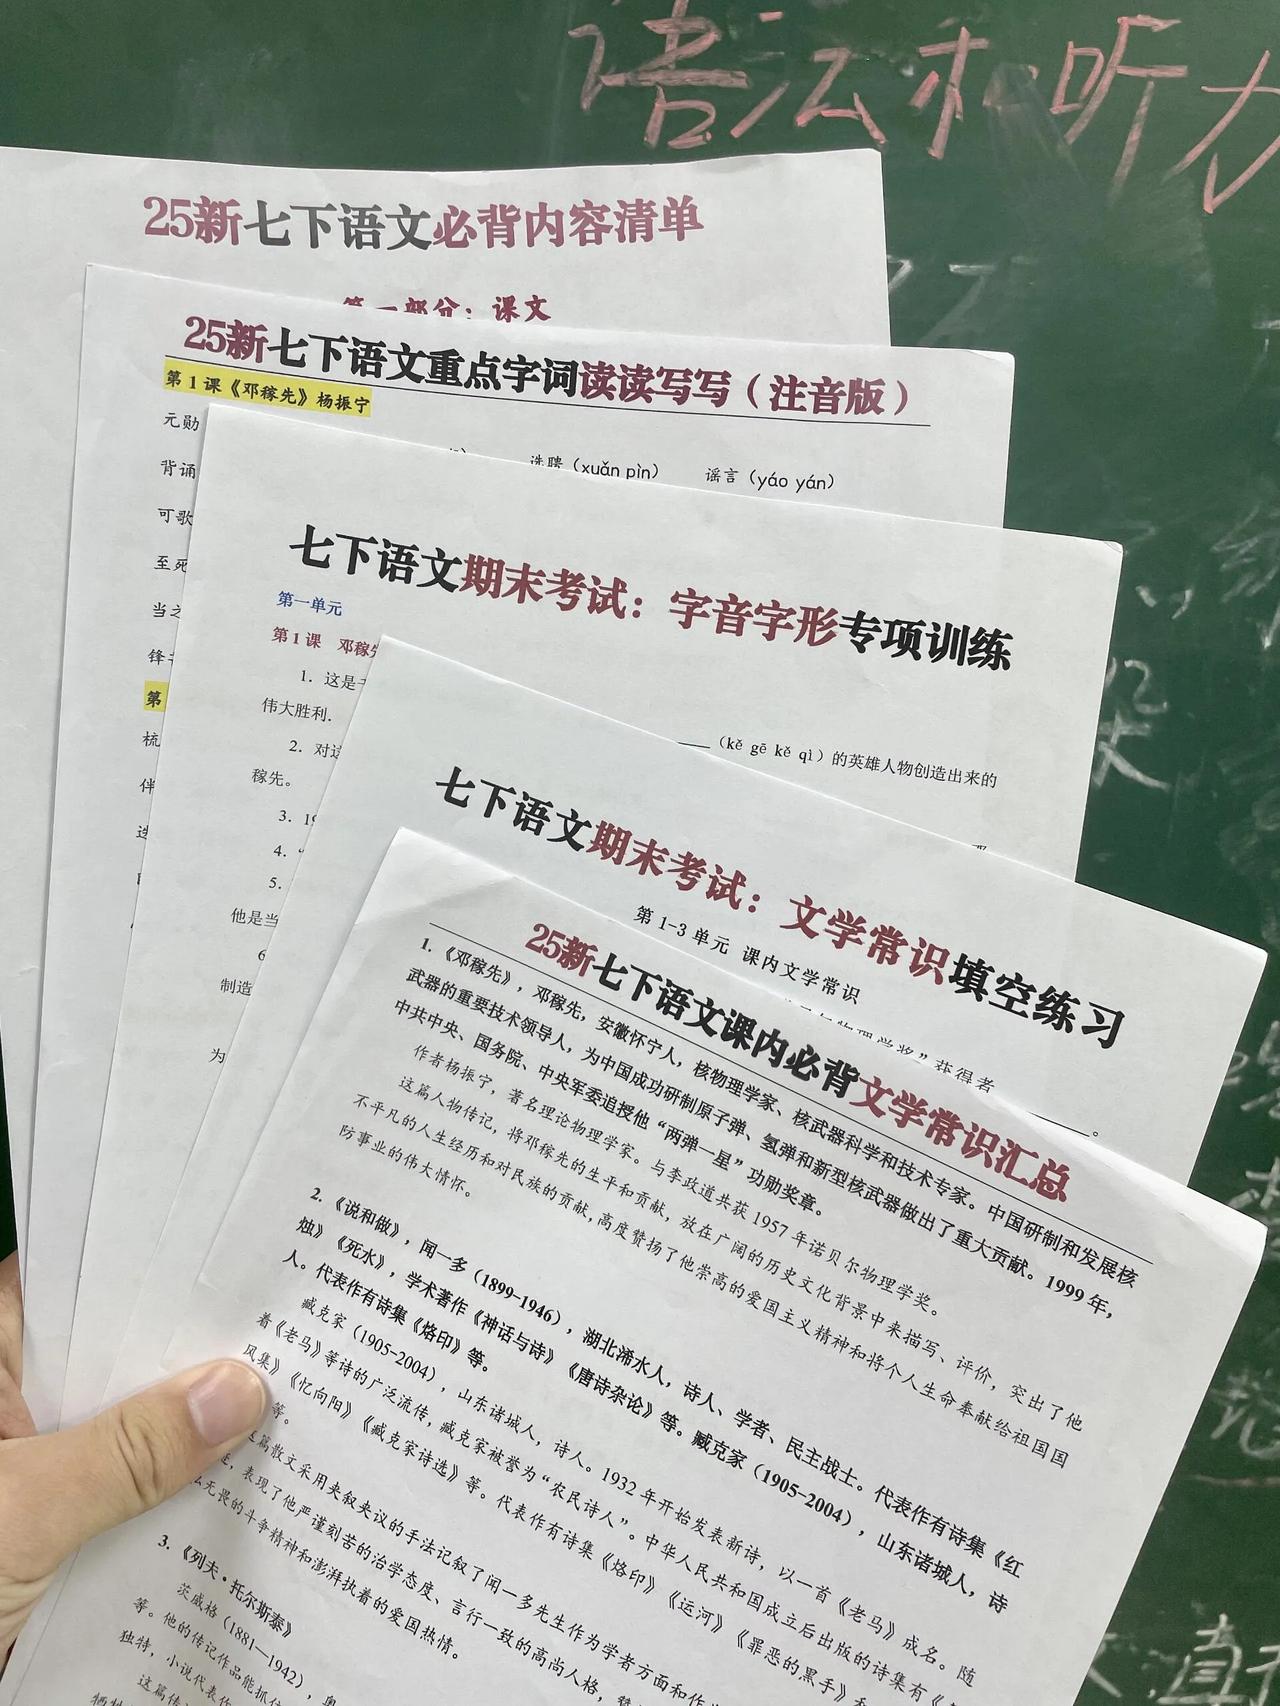 语法和听力
25新七下语文必背内容清单
第一部分：课文
25新七下语文重点字词读读写写（注音版）
第1课《邓稼先》杨振宁
元勋
选聘（xuǎn pìn） 谣言（yáo yán）
背诵
可歌
至死
当之
锋
第
梳
伴
选
七下语文期末考试：字音字形专项训练
第一单元
第1课 邓稼先
1. 这是
伟大胜利.
（kě gē kě qì）的英雄人物创造出来的
2. 对这
稼先。
3. 19
4. “
5.
他是当
6
制造
为
七下语文期末考试：文学常识填空练习
第 1-3 单元 课内文学常识
物理学奖”获得者 。
25新七下语文课内必背文学常识汇总
1. 《邓稼先》，邓稼先，安徽怀宁人，核物理学家、核武器科学和技术专家。中国研制和发展核
武器的重要技术领导人，为中国成功研制原子弹、氢弹和新型核武器做出了重大贡献。1999 年，
中共中央、国务院、中央军委追授他“两弹一星”功勋奖章。
作者杨振宁，著名理论物理学家。与李政道共获 1957 年诺贝尔物理学奖。
这篇人物传记，将邓稼先的生平和贡献，放在广阔的历史文化背景中来描写、评价，突出了他
不平凡的人生经历和对民族的贡献,高度赞扬了他崇高的爱国主义精神和将个人生命奉献给祖国国
防事业的伟大情怀。
2. 《说和做》，闻一多（1899-1946），湖北浠水人，诗人、学者、民主战士。代表作有诗集《红
烛》《死水》，学术著作《神话与诗》《唐诗杂论》等。臧克家（1905-2004），山东诸城人，诗
人。代表作有诗集《烙印》等。
臧克家（1905-2004），山东诸城人，诗人。1932 年开始发表新诗，以一首《老马》成名。随
着《老马》等诗的广泛流传，臧克家被誉为“农民诗人”。中华人民共和国成立后出版的诗集有《
风集》《忆向阳》《臧克家诗选》等。代表作有诗集《烙印》《运河》《罪恶的黑手》
等。
这篇散文采用夹叙夹议的手法记叙了闻一多先生作为学者方面和作
，表现了他严谨刻苦的治学态度、言行一致的高尚人格，赞
无畏的斗争精神和澎湃执着的爱国热情。
3. 《列夫·托尔斯泰》
茨威格（1881—1942），奥
等。他的传记作品能抓住
独特，小说代表作
这篇传